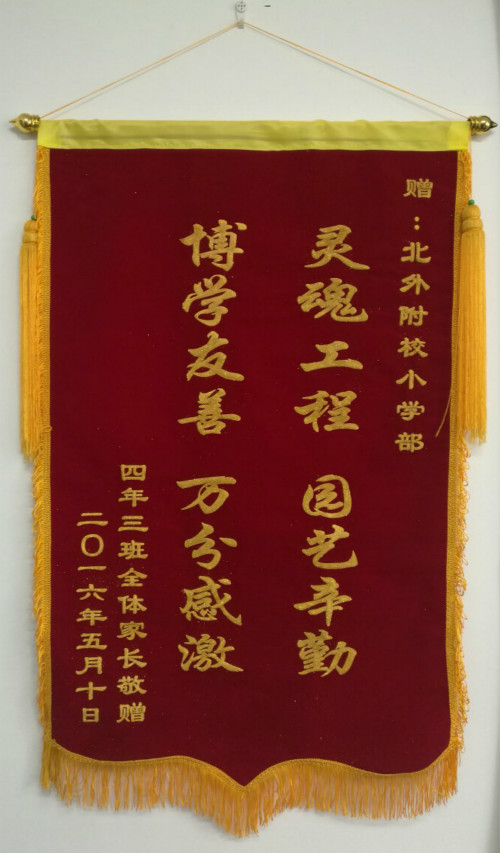 赠：北外附校小学部
灵魂工程 园艺辛勤
博学友善 万分感激
四年三班全体家长敬赠
二〇一六年五月十日